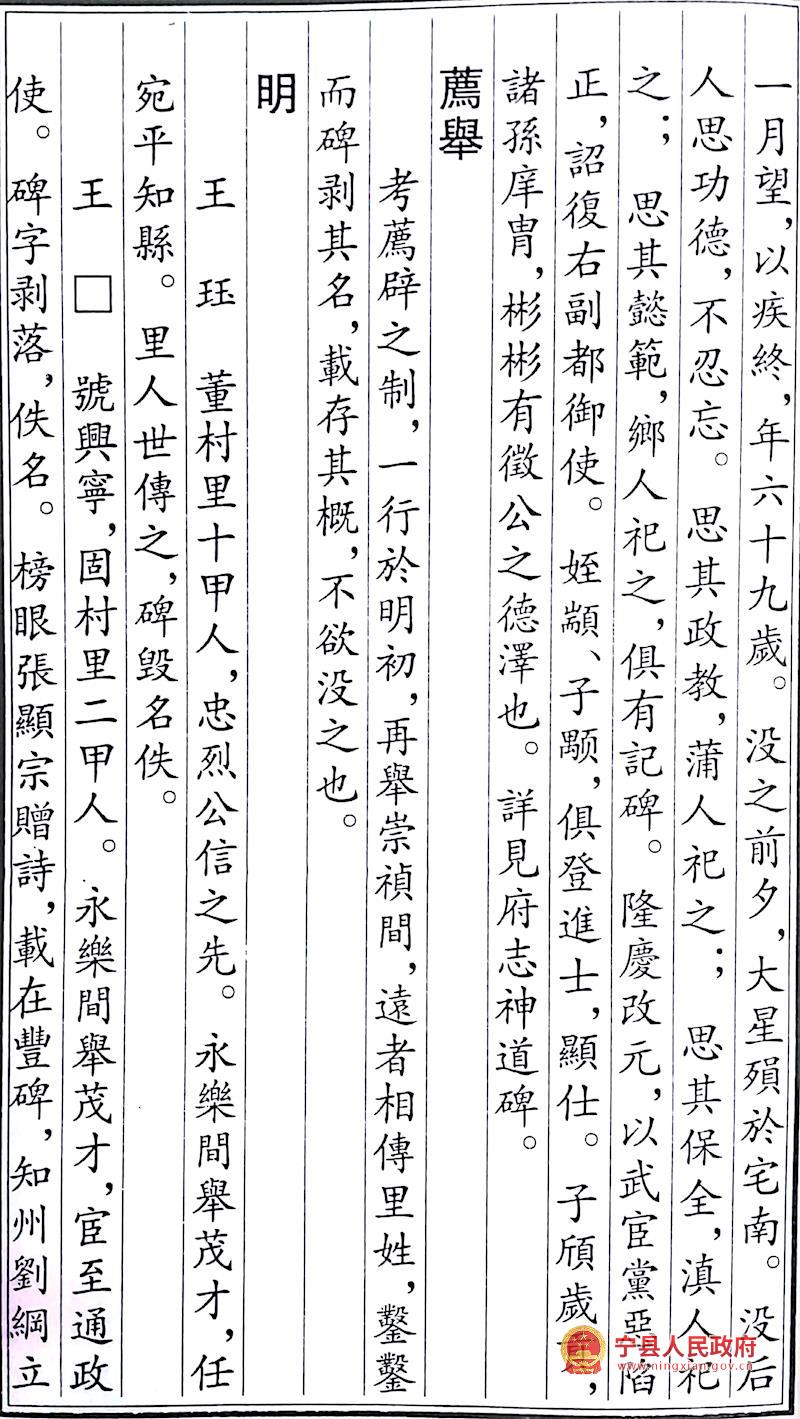 一月望，以疾終，年六十九歲。没之前夕，大星殞於宅南。没后
人思功德，不忍忘。思其政教，蒲人祀之；思其保全，滇人祀
之；思其懿範，鄉人祀之，俱有記碑。隆慶改元，以武宦黨惡陷
正，詔復右副都御使。姪顓、子颙，俱登進士，顯仕。子頎歲，
諸孫庠胄，彬彬有徵公之德澤也。詳見府志神道碑。
薦舉
考薦辟之制，一行於明初，再舉崇禎間，遠者相傳里姓，鑿鑿
而碑剥其名，載存其概，不欲没之也。
明
王珏 董村里十甲人，忠烈公信之先。永樂間舉茂才，任
宛平知縣。里人世傳之，碑毁名佚。
王□ 號興寧，固村里二甲人。永樂間舉茂才，宦至通政
使。碑字剥落，佚名。榜眼張顯宗贈詩，載在豐碑，知州劉綱立
宁县人民政府
www.ningxian.gov.cn